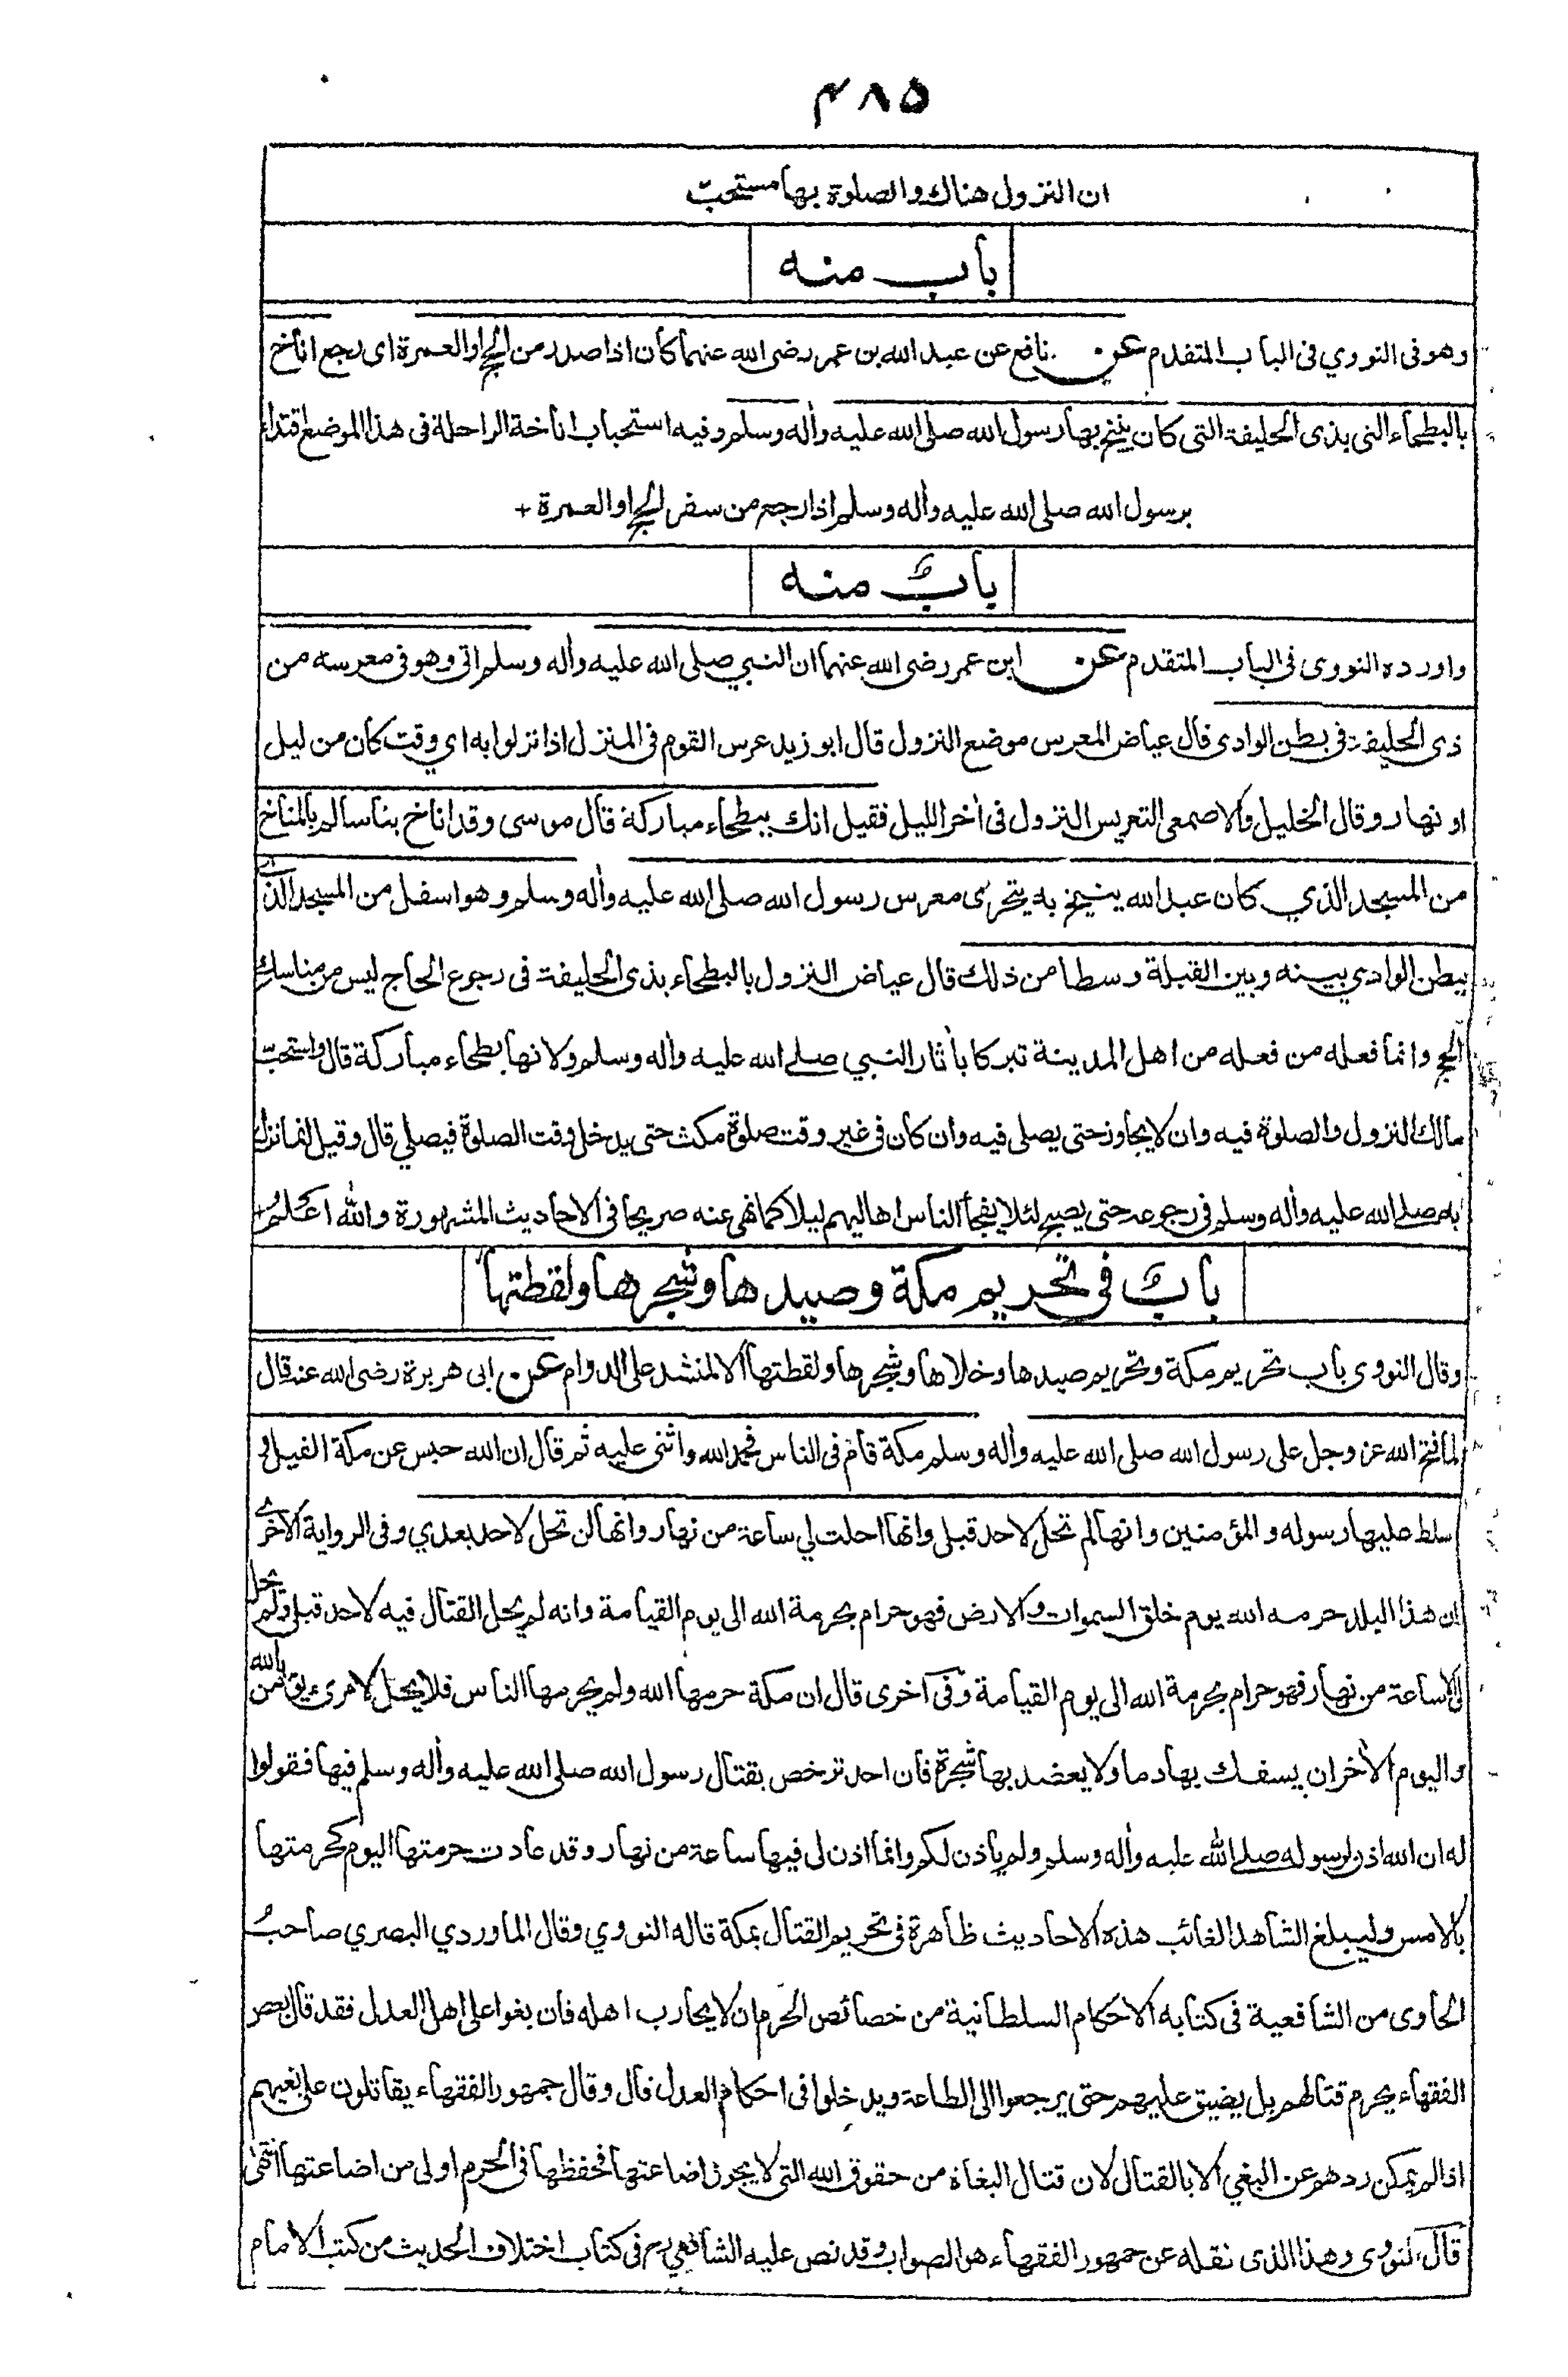 ٤٨٥
ان النزول هناك والصلوة بها مستحبّ
باب منه
وهو فى النووي فى الباب المتقدم عن نافع عن عبد الله بن عمر رضى الله عنهما كان اذا صدر من الحج او العمرة اى رجع اناخ
بالبطحاء التى بذى الحليفة التى كان ينيخ بها رسول الله صلى الله عليه وأله وسلم وفيه استحباب اناخة الراحلة فى هذا الموضع اقتداء
برسول الله صلى الله عليه وأله وسلم اذا رجع من سفر الحج او العمرة +
بابٌ منه
واورده النووى فى الباب المتقدم عن ابن عمر رضى الله عنهما ان النبي صلى الله عليه وأله وسلم اتى وهو فى معرسه من
ذى الحليفة فى بطن الوادى قال عياض المعرس موضع النزول قال ابو زيد عرس القوم فى المنزل اذا نزلوا به اي وقت كان من ليل
او نهار وقال الخليل والاصمعى التعريس النزول فى أخر الليل فقيل انك ببطحاء مباركة قال موسى وقد اناخ بنا سالم بالمناخ
من المسجد الذي كان عبد الله ينيخ به يتحرى معرس رسول الله صلى الله عليه وأله وسلم وهو اسفل من المسجد الذى
ببطن الوادي بينه وبين القبلة وسطا من ذلك قال عياض النزول بالبطحاء بذى الحليفة فى رجوع الحاج ليس من مناسك
الحج وانما فعله من فعله من اهل المدينة تبركا بأثار النبي صلى الله عليه وأله وسلم ولانها بطحاء مباركة قال واستحبّ
مالك النزول والصلوة فيه وان لا يجاوز حتى يصلى فيه وان كان فى غير وقت صلوة مكث حتى يدخل وقت الصلوة فيصلي قال وقيل انما نزل
به صلى الله عليه وأله وسلم فى رجوعه حتى يصبح لئلا يفجأ الناس اهاليهم ليلا كما نهى عنه صريحا فى الاحاديث المشهورة والله اعلم
بابٌ فى تحريم مكة وصيدها وشجرها ولقطتها
وقال النووى باب تحريم مكة وتحريم صيدها وخلاها وشجرها ولقطتها الا لمنشد على الدوام عن ابى هريرة رضى الله عنه قال
لما فتح الله عز وجل على رسول الله صلى الله عليه وأله وسلم مكة قام فى الناس فحمد الله واثنى عليه ثم قال ان الله حبس عن مكة الفيل و
سلط عليها رسوله والمؤمنين وانها لم تحل لاحد قبلى وانها احلت لي ساعة من نهار وانها لن تحل لاحد بعدي وفى الرواية الاخرى
ان هذا البلد حرمه الله يوم خلق السموات والارض فهو حرام بحرمة الله الى يوم القيامة وانه لم يحل القتال فيه لاحد قبلى ولم يحل
لى الا ساعة من نهار فهو حرام بحرمة الله الى يوم القيامة وفى اخرى قال ان مكة حرمها الله ولم يحرمها الناس فلا يحل لامرئ يؤمن بالله
واليوم الأخر ان يسفك بها دما ولا يعضد بها شجرة فان احد ترخص بقتال رسول الله صلى الله عليه وأله وسلم فيها فقولوا
له ان الله اذن لرسوله صلى الله عليه وأله وسلم ولم يأذن لكم وانما اذن لى فيها ساعة من نهار وقد عادت حرمتها اليوم كحرمتها
بالامس وليبلغ الشاهد الغائب هذه الاحاديث ظاهرة فى تحريم القتال بمكة قاله النووي وقال الماوردي البصري صاحبُ
الحاوى من الشافعية فى كتابه الاحكام السلطانية من خصائص الحرم ان لا يحارب اهله فان بغوا على اهل العدل فقد قال بعض
الفقهاء يحرم قتالهم بل يضيق عليهم حتى يرجعوا الى الطاعة ويدخلوا فى احكام العدل قال وقال جمهور الفقهاء يقاتلون على بغيهم
اذا لم يمكن ردهم عن البغي الا بالقتال لان قتال البغاة من حقوق الله التى لا يجوز اضاعتها فحفظها فى الحرم اولى من اضاعتها انتهى
قال النووى وهذا الذى نقله عن جمهور الفقهاء هو الصواب وقد نص عليه الشافعي رح فى كتاب اختلاف الحديث من كتب الامام